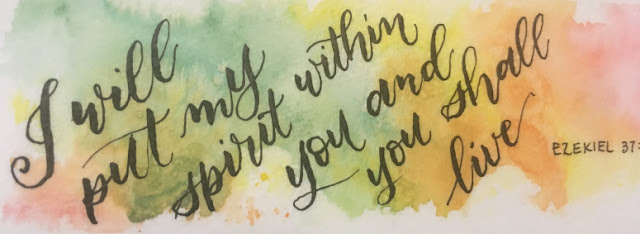 I will
put my
spirit within
you and
you shall
live
EZEKIEL 37: